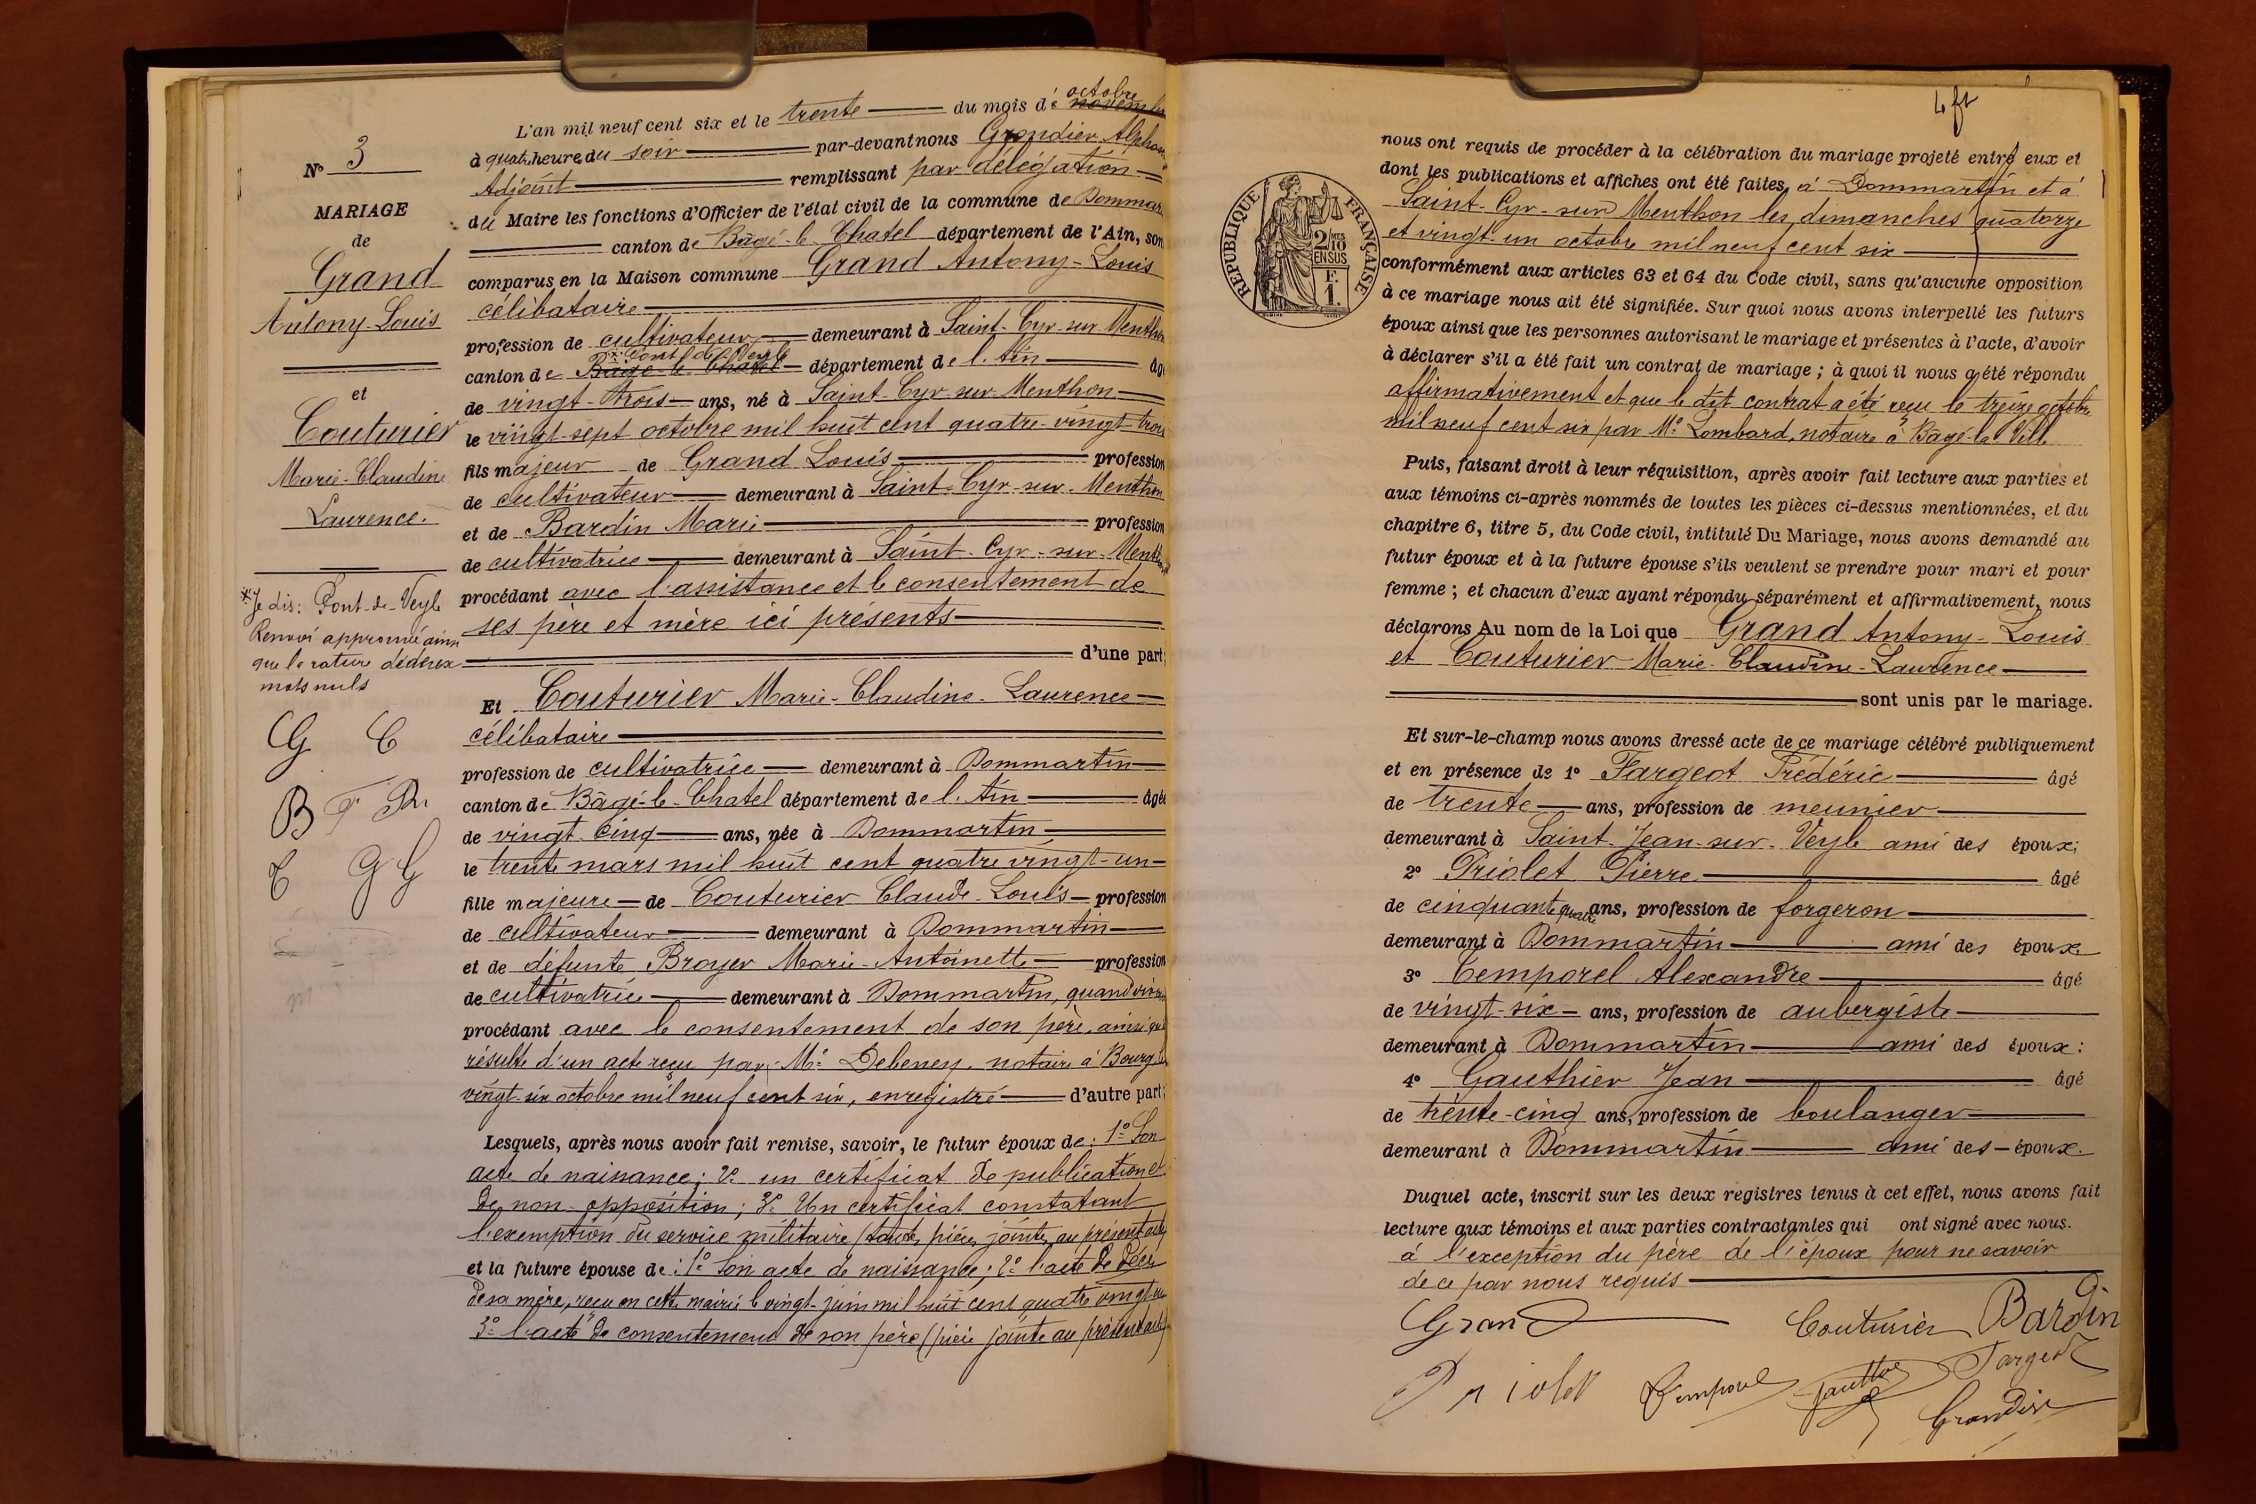 N° 3
MARIAGE
de
Grand
Antony-Louis
et
Couturier
Marie-Claudine
Laurence.
* Je dis: Pont-de-Veyle
Renvoi approuvé ainsi
que la rature de deux
mots nuls
G C
B F
T G G
L'an mil neuf cent six et le trente du mois de octobre novembre
à quatre heure du soir par-devant nous Grandier Alphonse
Adjoint remplissant par délégation
du Maire les fonctions d'Officier de l'état civil de la commune de Dommar
canton de Bâgé-le-Chatel département de l'Ain, son
comparus en la Maison commune Grand Antony-Louis
célibataire
profession de cultivateur demeurant à Saint-Cyr-sur-Menthon
* Pont de Veyle
canton de Bâgé-le-Chatel département de l'Ain âgé
de vingt-trois ans, né à Saint-Cyr-sur-Menthon
le vingt-sept octobre mil huit cent quatre-vingt-trois
fils majeur de Grand Louis profession
de cultivateur demeurant à Saint-Cyr-sur-Menthon
et de Bardin Marie profession
de cultivatrice demeurant à Saint-Cyr-sur-Menthon
procédant avec l'assistance et le consentement de
ses père et mère ici présents
d'une part;
Et Couturier Marie-Claudine-Laurence
célibataire
profession de cultivatrice demeurant à Dommartin
canton de Bâgé-le-Chatel département de l'Ain âgée
de vingt-cinq ans, née à Dommartin
le trente mars mil huit cent quatre vingt-un
fille majeure de Couturier Claude-Louis profession
de cultivateur demeurant à Dommartin
et de défunte Broyer Marie-Antoinette profession
de cultivatrice demeurant à Dommartin, quand vivait
procédant avec le consentement de son père, ainsi que
résulte d'un acte reçu par Me Debeney, notaire à Bourg le
vingt-six octobre mil neuf cent six, enregistré d'autre part;
Lesquels, après nous avoir fait remise, savoir, le futur époux de: 1° Son
acte de naissance; 2° un certificat de publication et
de non-opposition; 3° Un certificat constatant
l'exemption du service militaire (toutes pièces jointes au présent acte
et la future épouse de: 1° Son acte de naissance; 2° l'acte de décès
de sa mère, reçu en cette mairie le vingt-juin mil huit cent quatre vingt-un
3° l'acte de consentement de son père (pièce jointe au présent acte)
4 ft
RÉPUBLIQUE FRANÇAISE
2/10 MES
EN SUS
F.
1.
nous ont requis de procéder à la célébration du mariage projeté entre eux et
dont les publications et affiches ont été faites, à Dommartin et à
Saint-Cyr-sur Menthon les dimanches quatorze
et vingt-un octobre mil neuf cent six
conformément aux articles 63 et 64 du Code civil, sans qu'aucune opposition
à ce mariage nous ait été signifiée. Sur quoi nous avons interpellé les futurs
époux ainsi que les personnes autorisant le mariage et présentes à l'acte, d'avoir
à déclarer s'il a été fait un contrat de mariage; à quoi il nous a été répondu
affirmativement et que le dit contrat a été reçu le treize octobre
mil neuf cent six par Me Lombard, notaire à Bâgé-la-Ville
Puis, faisant droit à leur réquisition, après avoir fait lecture aux parties et
aux témoins ci-après nommés de toutes les pièces ci-dessus mentionnées, et du
chapitre 6, titre 5, du Code civil, intitulé Du Mariage, nous avons demandé au
futur époux et à la future épouse s'ils veulent se prendre pour mari et pour
femme; et chacun d'eux ayant répondu séparément et affirmativement, nous
déclarons Au nom de la Loi que Grand Antony-Louis
et Couturier Marie-Claudine-Laurence
sont unis par le mariage.
Et sur-le-champ nous avons dressé acte de ce mariage célébré publiquement
et en présence de 1° Fargeot Frédéric âgé
de trente ans, profession de meunier
demeurant à Saint-Jean-sur-Veyle ami des époux;
2° Priolet Pierre âgé
de cinquante quatre ans, profession de forgeron
demeurant à Dommartin ami des époux
3° Temporel Alexandre âgé
de vingt-six ans, profession de aubergiste
demeurant à Dommartin ami des époux:
4° Gauthier Jean âgé
de trente-cinq ans, profession de boulanger
demeurant à Dommartin ami des époux.
Duquel acte, inscrit sur les deux registres tenus à cet effet, nous avons fait
lecture aux témoins et aux parties contractantes qui ont signé avec nous.
à l'exception du père de l'époux pour ne savoir
de ce par nous requis
Grand Couturier Bardin
Priolet Temporel Gauthier Fargeot
Grandier